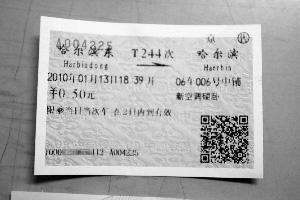 A004325
哈尔滨东 T244次 哈尔滨
Harbindong Haerbin
2010年01月13日18:39开 06车006号中铺
¥0.50元 新空调硬卧
限乘当日当次车 在2日内到有效
A004325